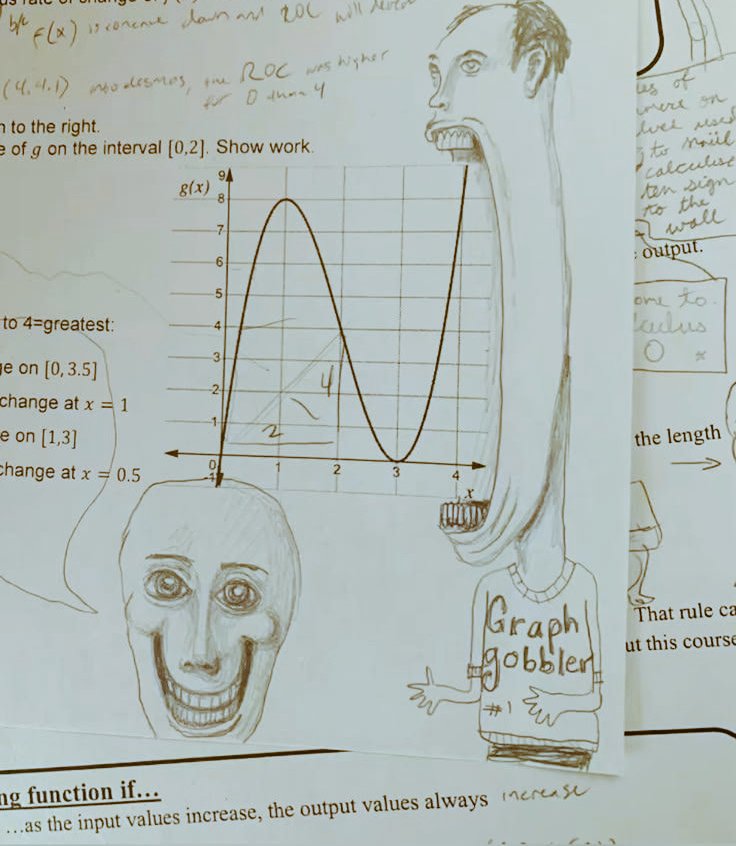 b/c f(x) is concave down and ROC will
(4, 4.1) into desmos, the ROC was higher
for 0 than 4
to the right.
e of g on the interval [0,2]. Show work.
g(x)
9
8
7
6
5
4
3
2
1
0
-1
1
2
3
4
x
4
2
to 4=greatest:
ge on [0, 3.5]
change at x = 1
e on [1,3]
change at x = 0.5
Graph
gobbler
#1
es of
were on
to nail
calculus
ten sign
to the
wall
output.
ome to
culus
the length
That rule ca
ut this course
ng function if...
...as the input values increase, the output values always increase